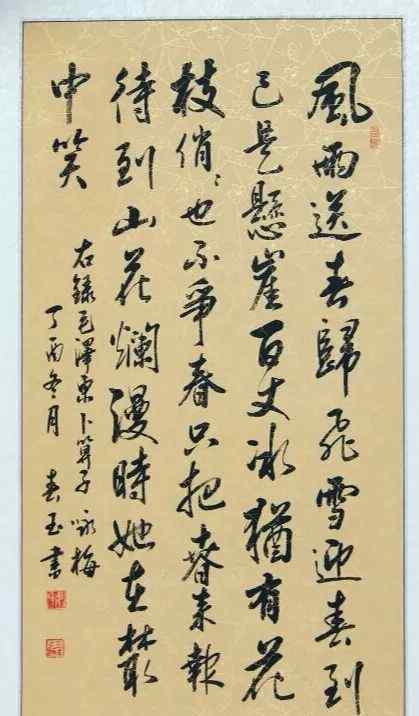 風雨送春歸飛雪迎春到
已是懸崖百丈冰猶有花
枝俏〻也不爭春只把春來報
待到山花爛漫時她在叢
中笑
右錄毛澤東卜算子詠梅
丁酉冬月 春玉書